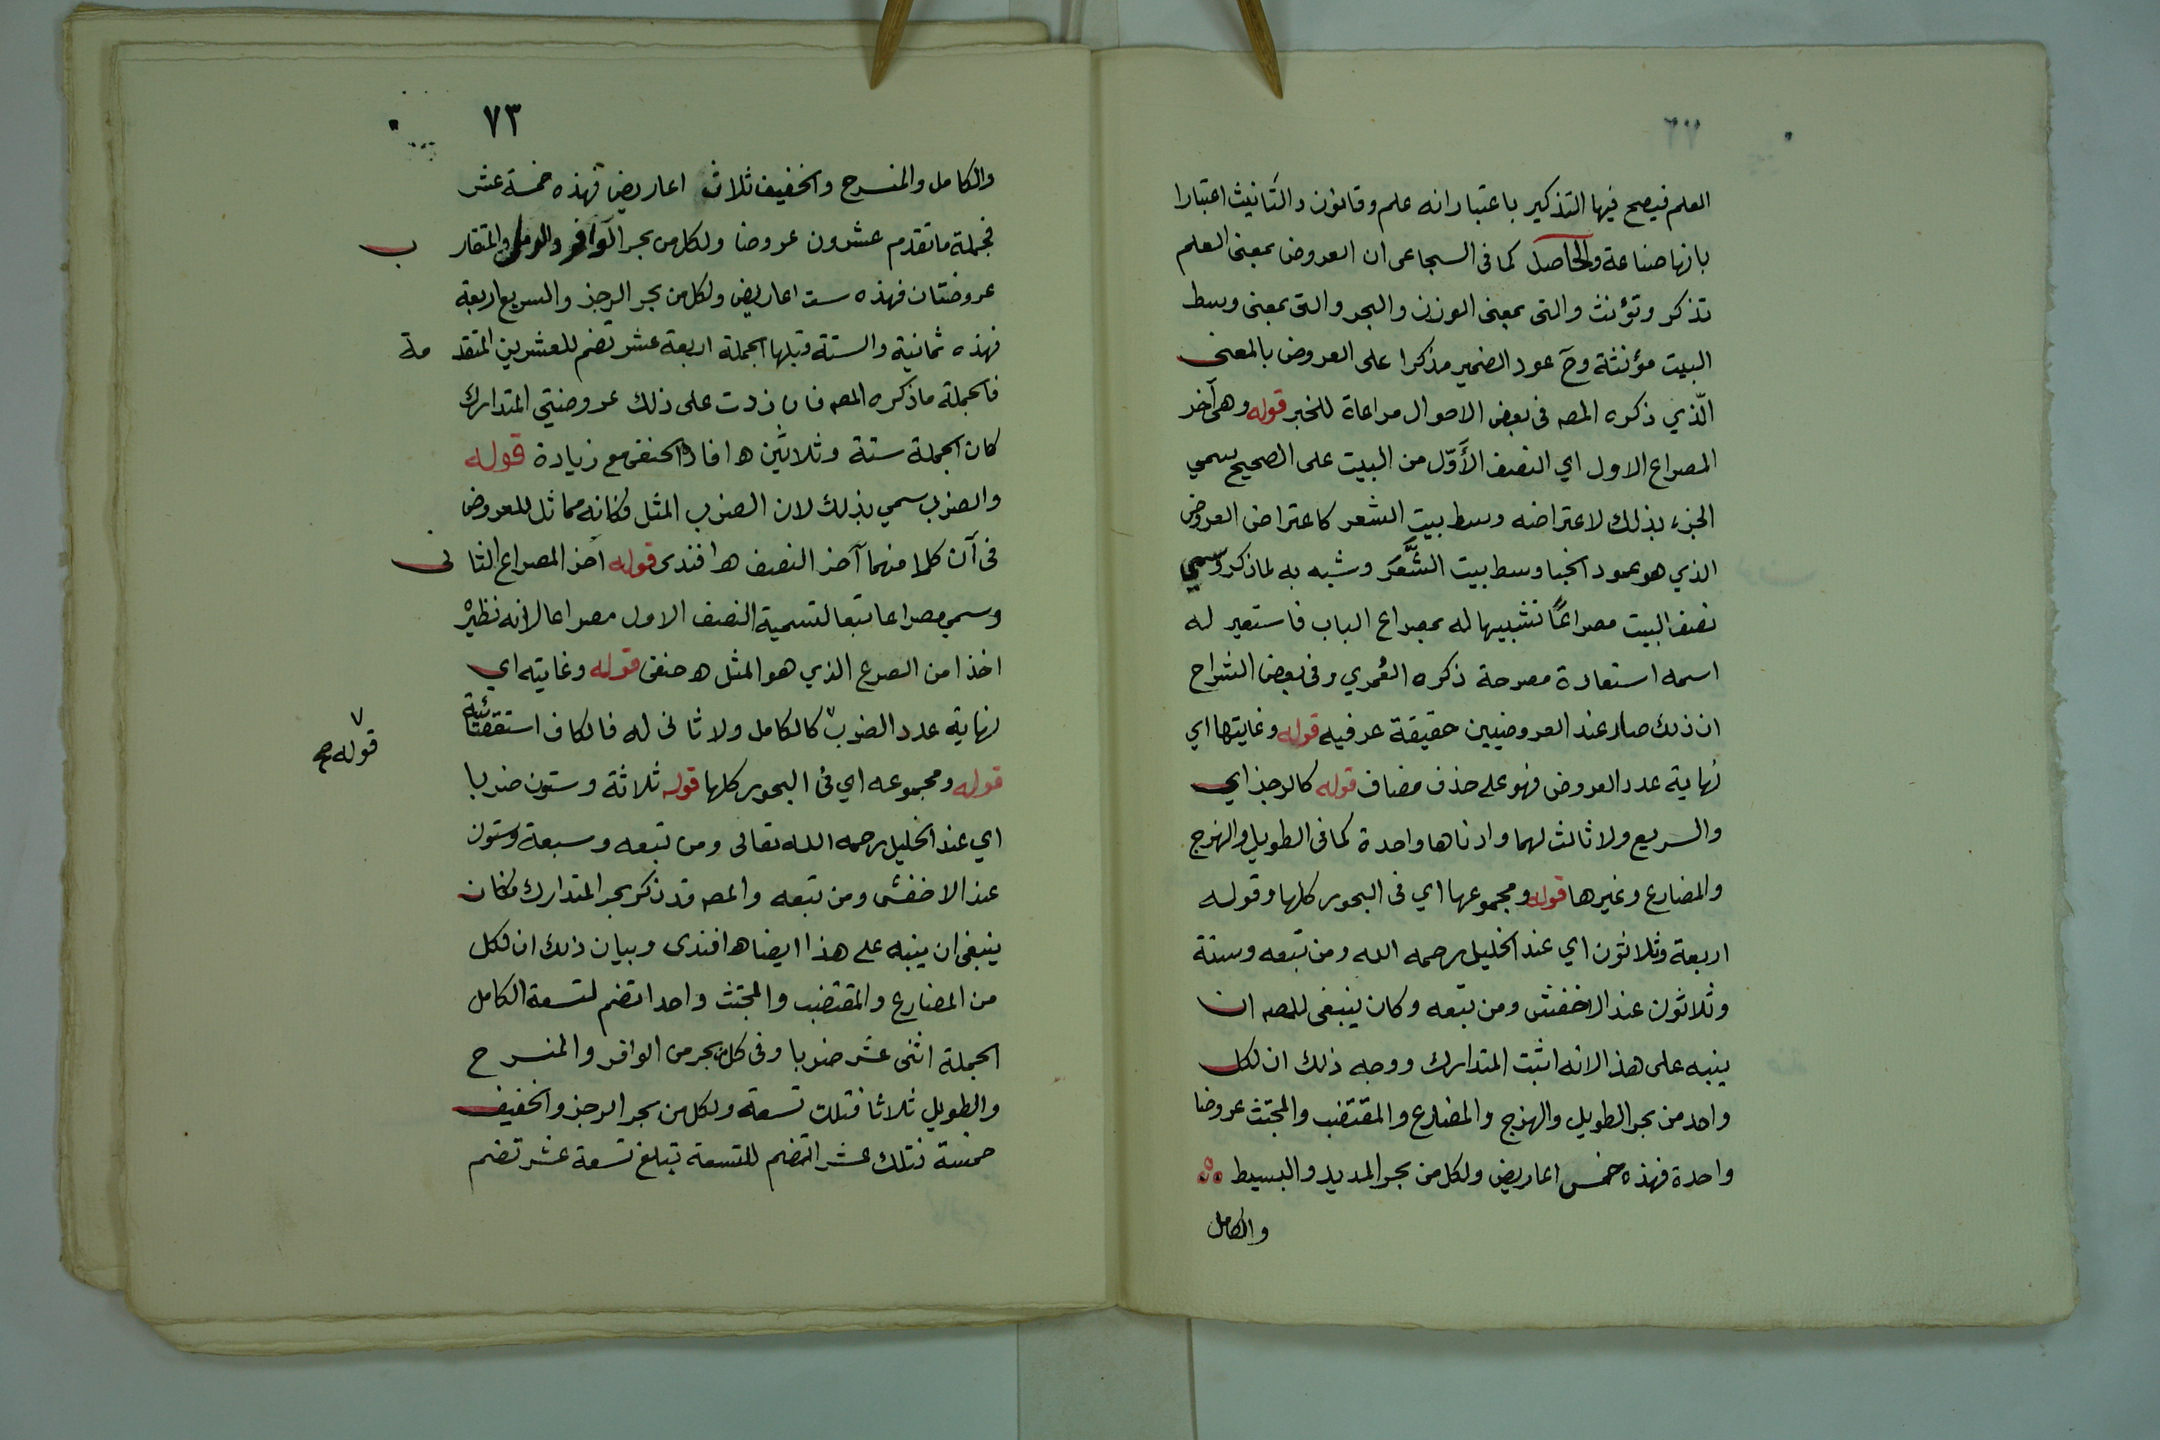 العلم فيصح فيها التذكير باعتبار انه علم وقانون والتانيث اعتبارا
بانها صناعة والحاصل كما فى السجاعى ان العروض بمعنى العلم
تذكر وتؤنث والتى بمعنى الوزن والبحر والتى بمعنى وسط
البيت مؤنثة وح عود الضمير مذكرا على العروض بالمعنى
الّذي ذكره المصه فى بعض الاحوال مراعاة للخبر قوله وهى آخر
المصراع الاول اي النصف الأَوّل من البيت على الصحيح سمي
الجزء بذلك لاعتراضه وسط بيت الشعر كاعتراض العروض
الذي هو عمود الخبا وسط بيت الشَّعَر وشبه به لما ذكر وسمي
نصف البيت مصراعًا تشبيها له بمصراع الباب فاستعير له
اسمه استعارة مصرحة ذكره الغُمري وفى بعض الشراح
ان ذلك صار عند العروضيين حقيقة عرفيه قوله وغايتها اي
نهاية عدد العروض فهو على حذف مضاف قوله كالرجز اي
والسريع ولا ثالث لهما وادناها واحدة كما فى الطويل والهزج
والمضارع وغيرها قوله ومجموعها اي فى البحور كلها وقوله
اربعة وثلاثون اي عند الخليل رحمه الله ومن تبعه وستة
وثلاثون عند الاخفش ومن تبعه وكان ينبغى للمصه ان
ينبه على هذا لانه اثبت المتدارك ووجه ذلك ان لكل
واحد من بحر الطويل والهزج والمضارع والمقتضب والمجتث عروضا
واحدة فهذه خمس اعاريض ولكل من بحر المديد والبسيط
والكامل
٧٣
والكامل والمنسرح والخفيف ثلاث اعاريض فهذه خمسة عشر
فجملة ما تقدم عشرون عروضا ولكل من بحر الوافر والرمل والمتقارب
عروضتان فهذه ست اعاريض ولكل من بحر الرجز والسريع اربعة
فهذه ثمانية والستة قبلها الجملة اربعة عشر تضم للعشرين المتقدمة
فالجملة ما ذكره المصه فان زدت على ذلك عروضتي المتدارك
كان الجملة ستة وثلاثين ه افاده الحنفى مع زيادة قوله
والضرب سمي بذلك لان الضرب المثل فكانه مماثل للعروض
فى ان كلا منهما آخر النصف ه افندى قوله آخر المصراع الثانى
وسمي مصراعا تبعا لتسمية النصف الاول مصراعا لانه نظيره
اخذا من الصرع الذي هو المثل ه حنفى قوله وغايته اي
نهاية عدد الضرب ٧ كالكامل ولا ثانى له فالكاف استقصائية
٧ قوله صح
قوله ومجموعه اي فى البحور كلها قوله ثلاثة وستون ضربا
اي عند الخليل رحمه الله تعالى ومن تبعه وسبعة وستون
عند الاخفش ومن تبعه والمصه قد ذكر بحر المتدارك فكان
ينبغى ان ينبه على هذا ايضا ه افندى وبيان ذلك ان فكل
من المضارع والمقتضب والمجتث واحدا تضم لتسعة الكامل
الجملة اثنى عشر ضربا وفى كل من بحر من الوافر والمنسرح
والطويل ثلاثا فتلك تسعة ولكل من بحر الرجز والخفيف
خمسة فتلك عشرا تضم للتسعة تبلغ تسعة عشر تضم